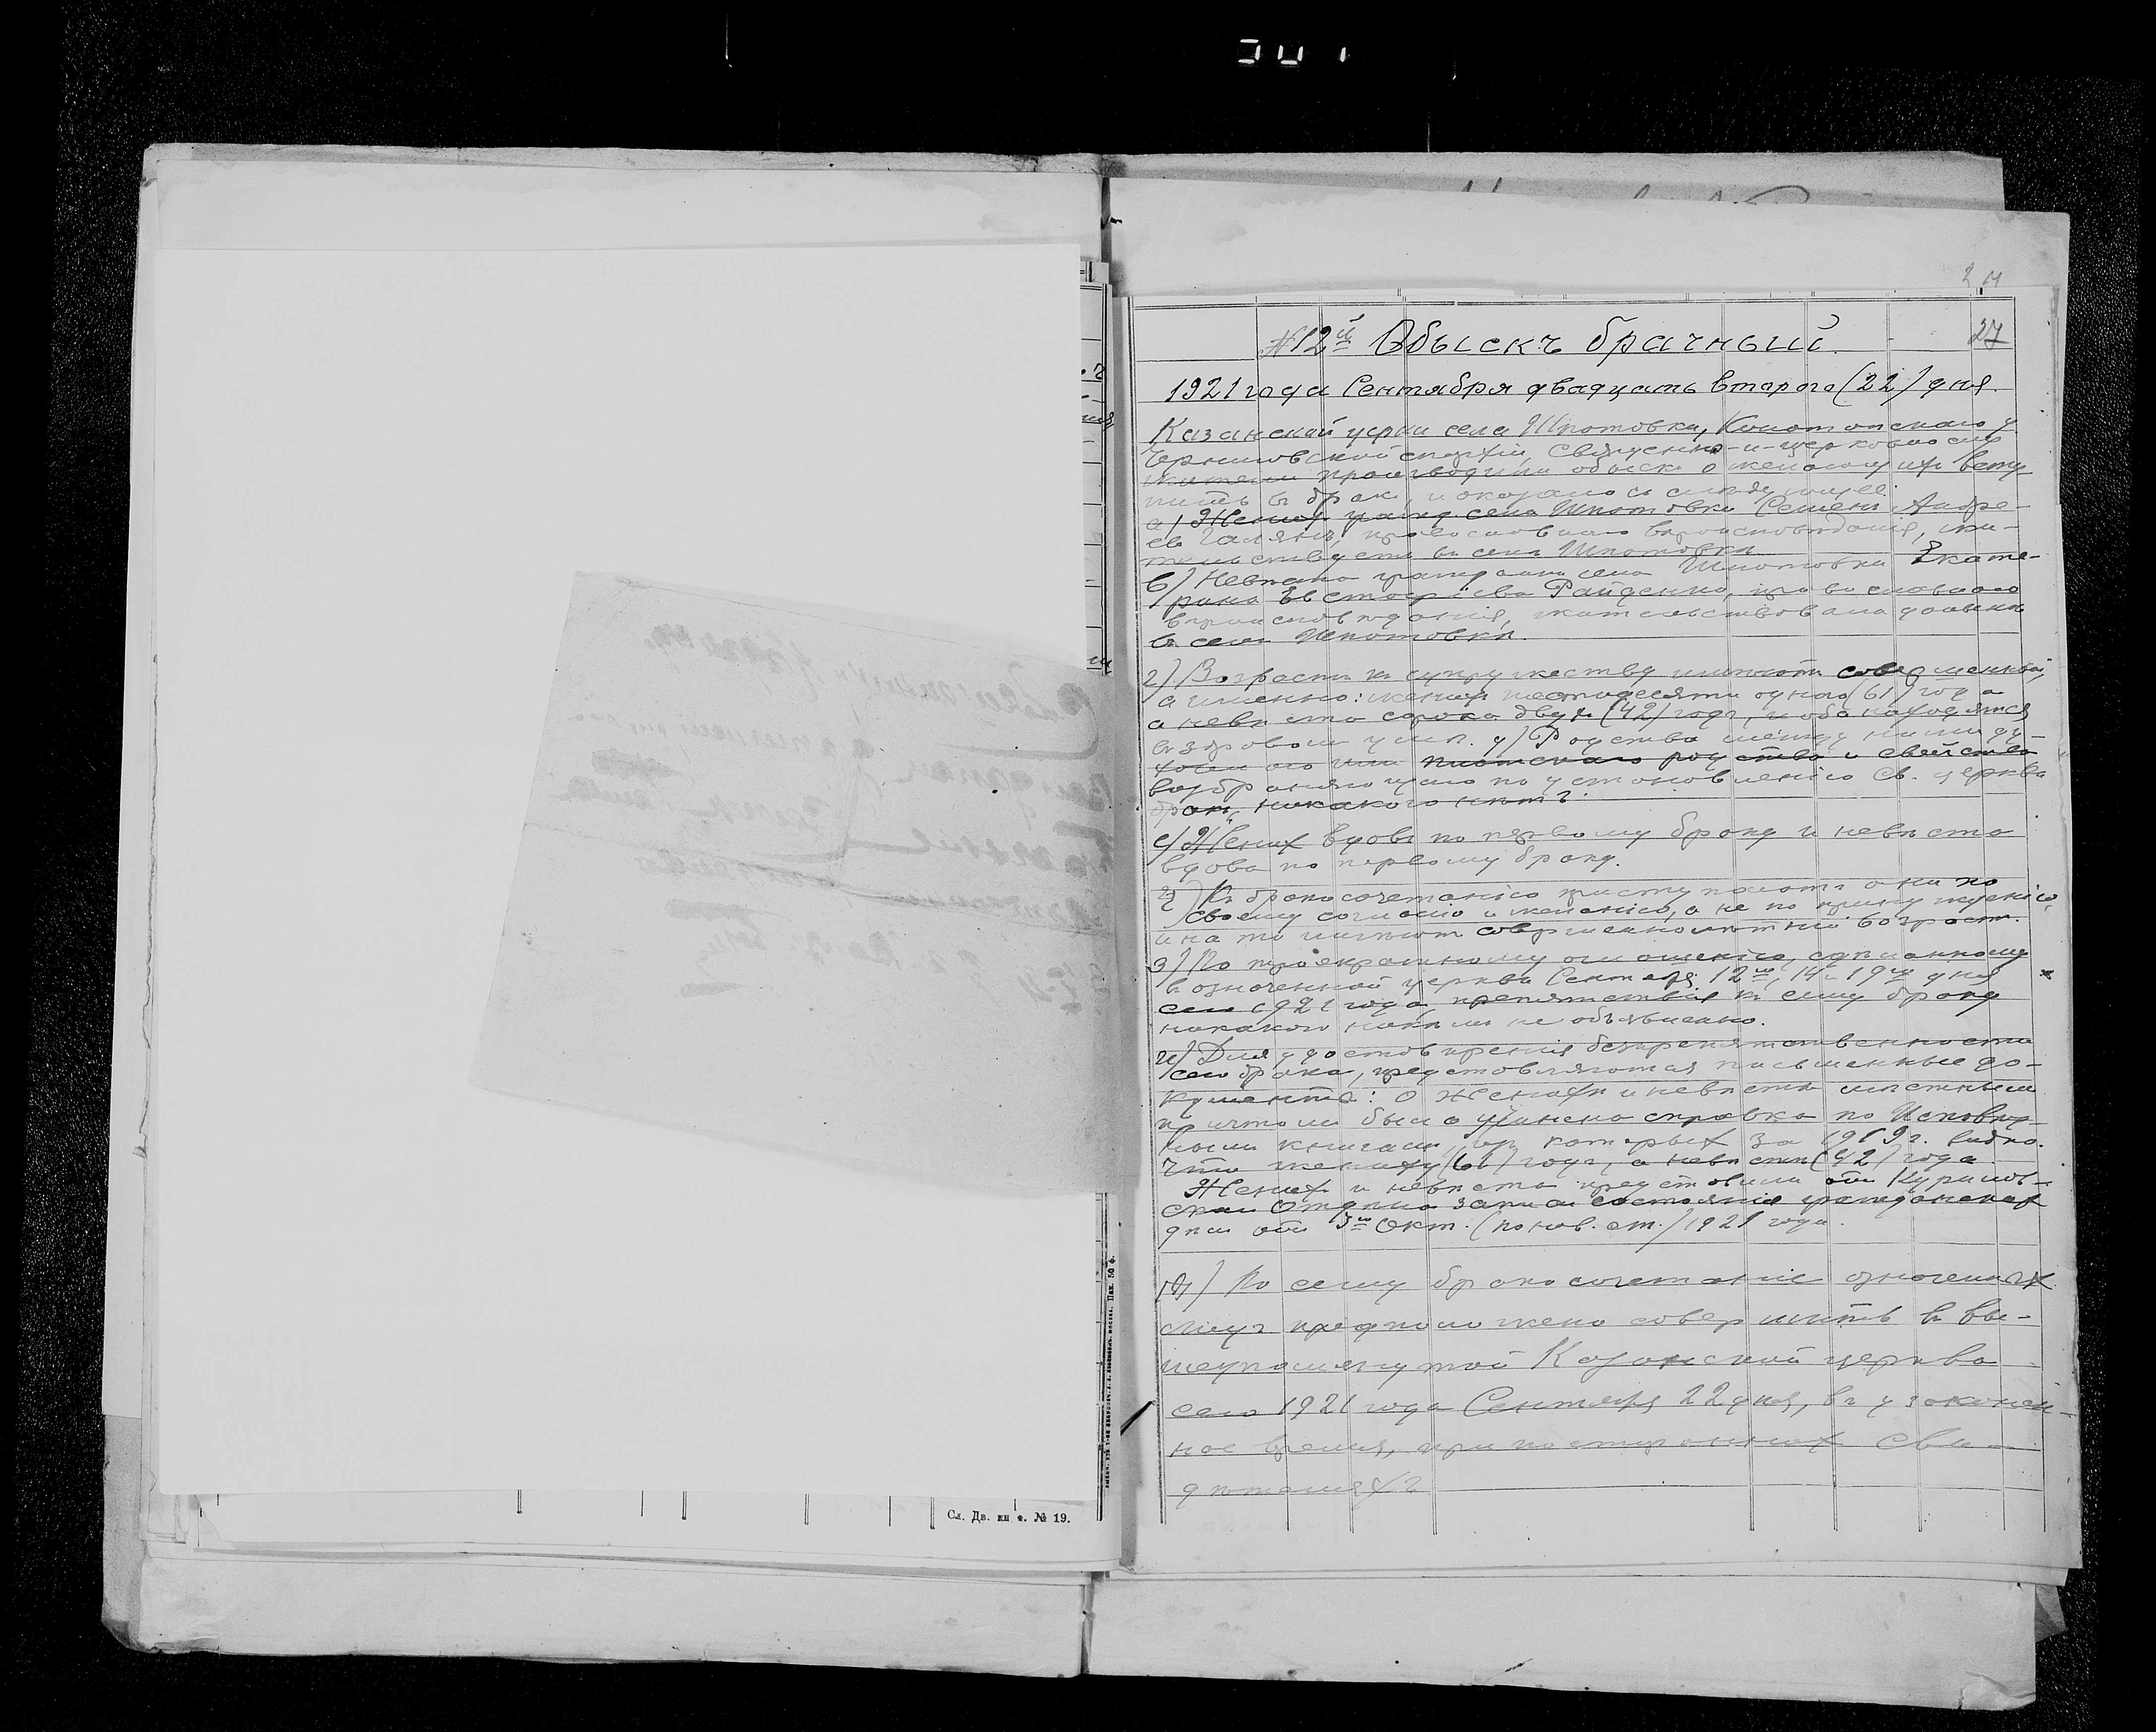 27
№12й Обыскъ брачный.
1921 года Сентября двадцать второго (22) дня.
Казанской церкви села Шпотовки, Конотопскаго у.
Черниговской епархіи, Священно-и-церковнослу
жители производили обыскъ о желающихъ всту
пить въ бракъ, и оказалось слѣдующее:
а) Женихъ гражд. села Шпотовки Семенъ Андре-
евъ православнаго вѣроисповѣданія, жи-
тельствуетъ въ селѣ Шпотовкѣ
б) Невѣста гражданка села Шпотовки Екате-
рина Евстафіева Райденко, православнаго
вѣроисповѣданія, жительствовала донынѣ
въ селѣ Шпотовкѣ.
2) Возрастъ къ супружеству имѣютъ совершенный,
а именно: женихъ шестидесяти одного (61) года
а невѣста сорока двухъ (42) годъ, и оба находятся
въ здравомъ умѣ. Родства между ними ду-
ховнаго или плотскаго родства и свойства
возбраняющаго по установленію Св. церкви
бракъ, никакого нѣтъ.
Женихъ вдовъ по первому браку и невѣста
вдова по первому браку.
Къ бракосочетанію приступаютъ они по
своему согласію и желанію, а не по принужденію,
и на то имѣютъ совершеннолѣтній возрастъ.
3) По троекратному оглашенію, сдѣланному
въ означенной церкви Сентября 12го, 14 и 19го дня
сего 1921 года, препятствія къ сему браку
никакого никѣмъ не объявлено.
и) Для удостовѣренія безпрепятственности
сего брака, представляются письменные до-
кументы: о женихѣ и невѣстѣ мѣстнымъ
причтомъ была учинена справка по Исповѣд-
нымъ книгамъ, изъ которыхъ за 1919 г. видно.
что жениху (61) годъ, а невѣстѣ (42) года.
Женихъ и невѣста представили отъ Курилов-
скаго Отдѣла записи состоянія гражданскаго
отъ 5го Окт. (по нов. ст.) 1921 года.
По сему бракосочетаніе означенныхъ
лицъ предположено совершить въ вы-
шеупомянутой Казанской церкви
сего 1921 года Сентября 22 дня, въ узаконен-
ное время, при постороннихъ сви-
дѣтеляхъ
Сл. Дв. кн ф. № 19.